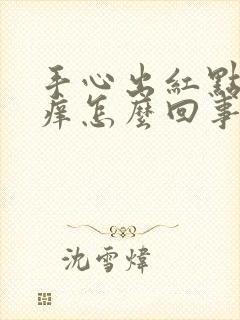 手心出紅點
痒怎麼回事
沈雪煒